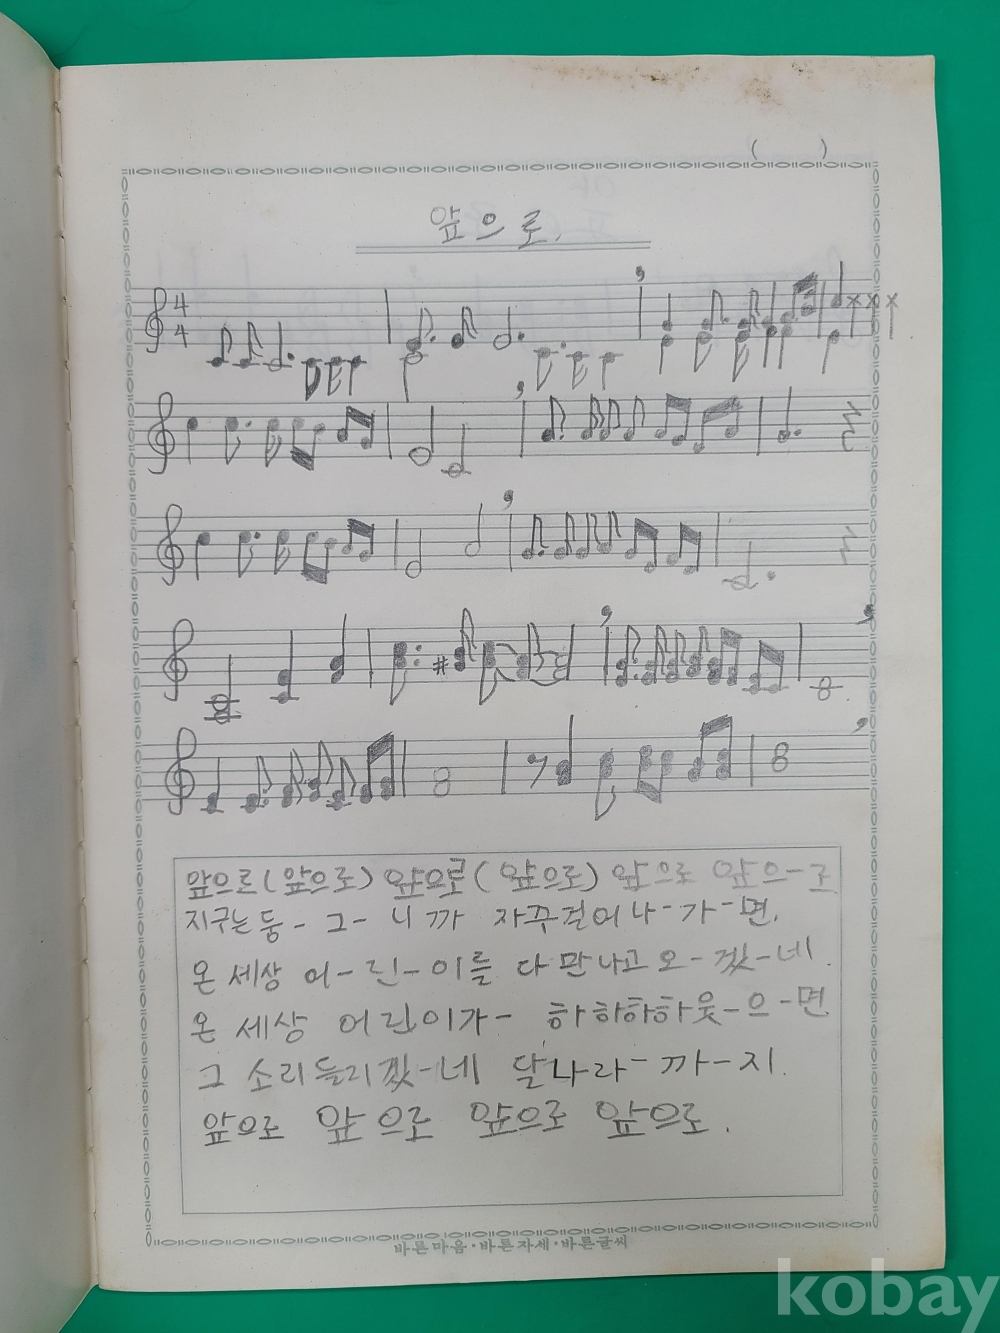 (          )
앞으로.
4
4
앞으로(앞으로) 앞으로(앞으로) 앞으로 앞으-로
지구는둥- 그- 니까 자꾸걸어나-가-면.
온세상 어-린-이를 다만나고오-겠-네.
온세상 어린이가- 하하하하웃-으-면
그 소리들리겠-네 달나라-까-지.
앞으로 앞으로 앞으로 앞으로.
바른마음·바른자세·바른글씨
kobay